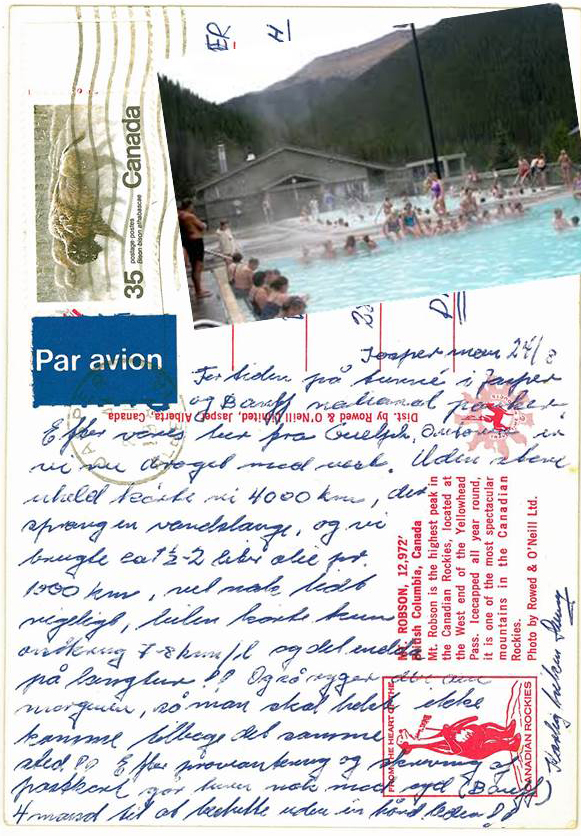 ER H
Canada
35
postage-postes
Bison bison athabascae
Par avion
Jasper man 24/8
For tiden på turné i Jasper
og Banff national parker.
Dist. by Rowed & O'Neill Limited, Jasper, Alberta, Canada
Efter vores tur fra Guelph, Ontario er
vi nu draget mod vest. Uden større
uheld kørte vi 4000 km, der
sprang en vandslange, og vi
brugte ca 1½-2 liter olie pr.
1000 km, vel nok lidt
rigeligt, bilen kørte kun
omkring 7-8 km/l og det endda
på langtur !! Også ryger den om
morgenen, så man skal helst ikke
komme tilbage det samme
sted !! Efter proviantering og skrivning af
postkort går turen nok mod syd (Banff)
4 mand til at bestille uden en hård
MT. ROBSON, 12,972'
British Columbia, Canada
Mt. Robson is the highest peak in
the Canadian Rockies, located at
the West end of the Yellowhead
Pass. Icecapped all year round,
it is one of the most spectacular
mountains in the Canadian
Rockies.
Photo by Rowed & O'Neill Ltd.
FROM THE HEART OF THE
CANADIAN ROCKIES
Kærlig hilsen